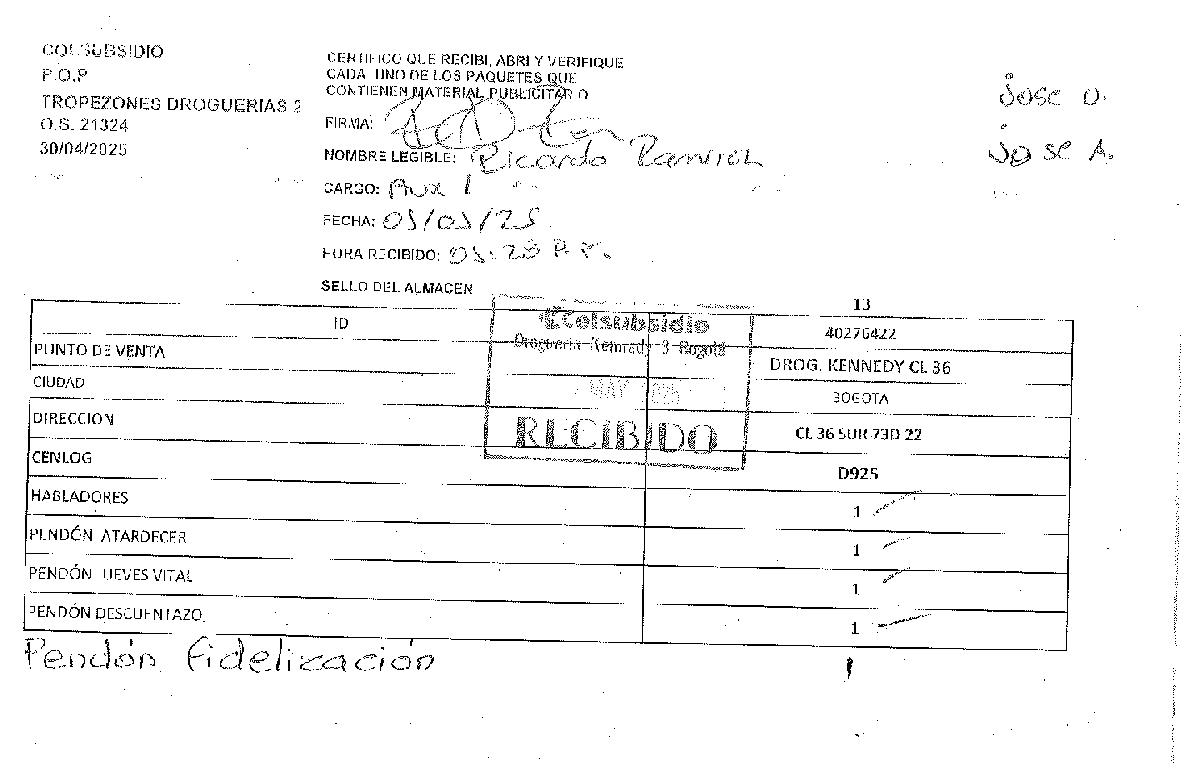 COLSUBSIDIO
P.O.P
TROPEZONES DROGUERIAS 2
O.S. 21324
30/04/2025
CERTIFICO QUE RECIBI, ABRI Y VERIFIQUE
CADA UNO DE LOS PAQUETES QUE
CONTIENEN MATERIAL PUBLICITARIO
FIRMA:
NOMBRE LEGIBLE: Ricardo Ramirez
CARGO: Aux 1
FECHA: 05/05/25
HORA RECIBIDO: 05:28 P.M.
SELLO DEL ALMACEN
Jose D.
Jose A.
13
ID 40276422
PUNTO DE VENTA DROG. KENNEDY CL 36
CIUDAD BOGOTA
DIRECCION CL 36 SUR 73D 22
CENLOG D925
HABLADORES 1
PENDÓN ATARDECER 1
PENDÓN JUEVES VITAL 1
PENDÓN DESCUENTAZO 1
Pendón fidelización 1
Colsubsidio
Droguería Kennedy 3 Bogotá
MAY 2025
RECIBIDO